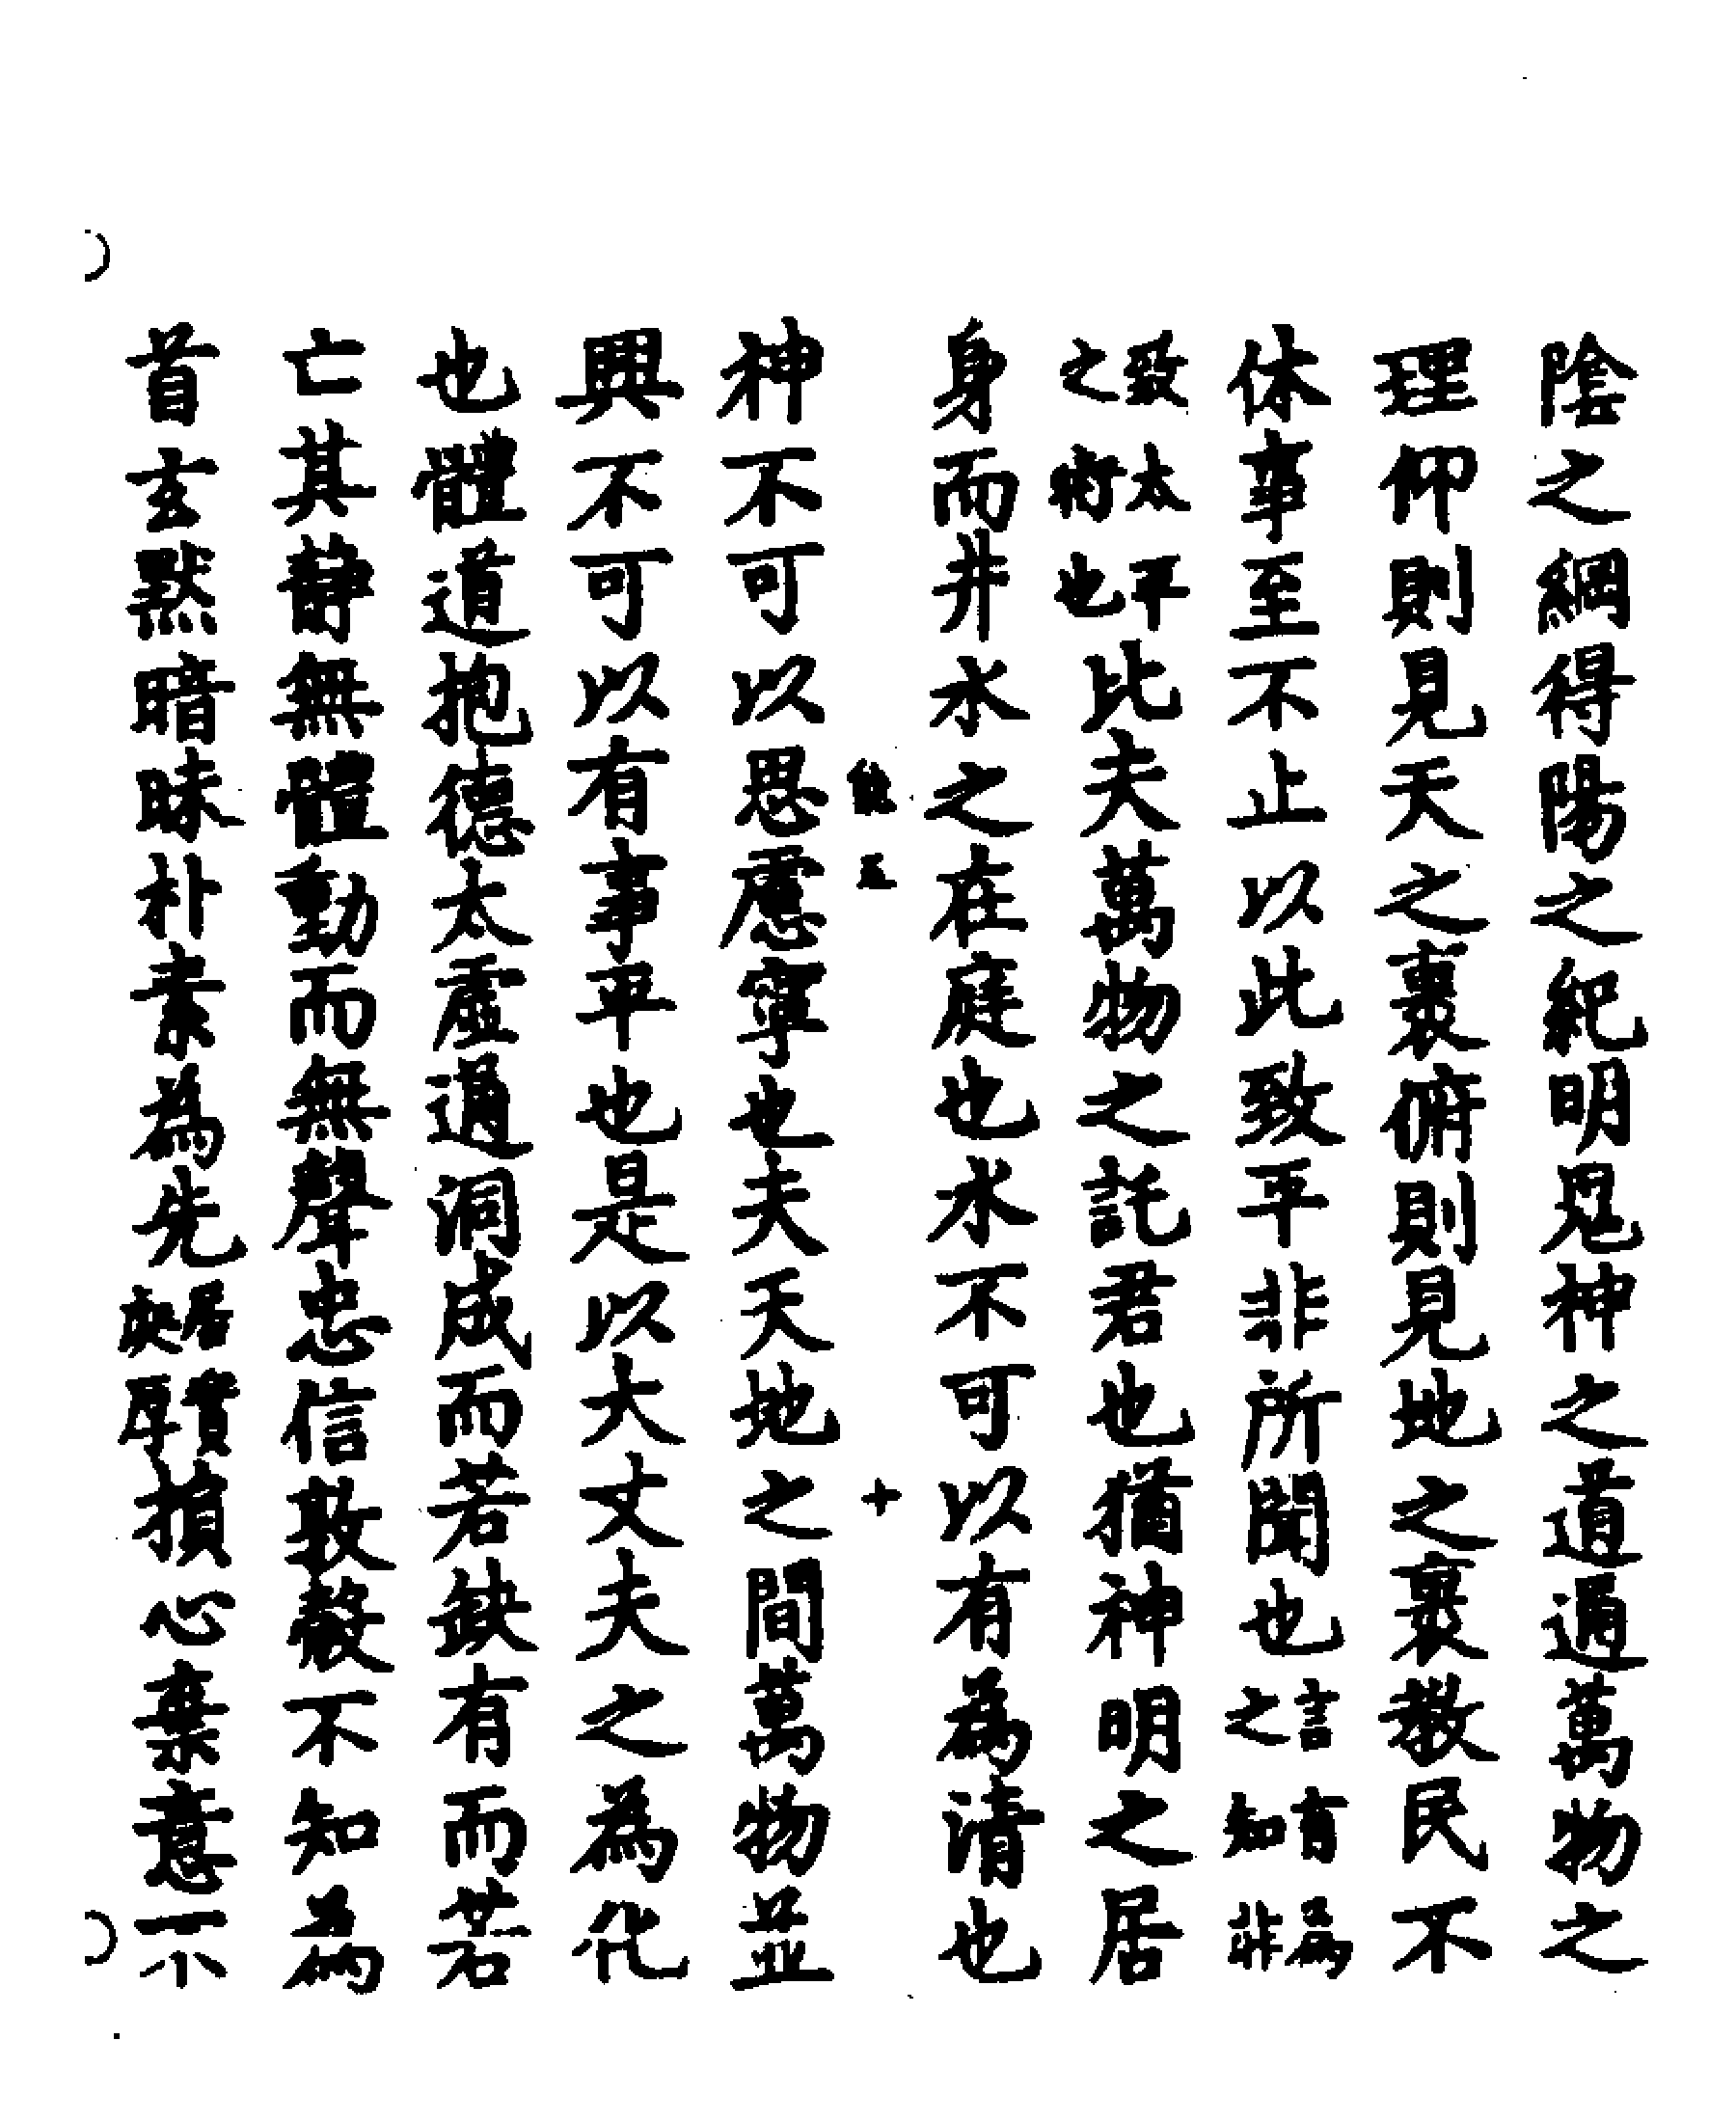 陰之綱得陽之紀明見神之道通萬物之
理仰則見天之裏俯則見地之裏教民不
休事至不止以此致平非所聞也言有為之知非
致太平之術也比夫萬物之託君也猶神明之居
身而井水之在庭也水不可以有為清也
能五 十
神不可以思慮寧也夫天地之間萬物並
興不可以有事平也是以大丈夫之為化
也體道抱德太虛通洞成而若缺有而若
亡其靜無體動而無聲忠信敦慤不知為
首玄默暗昧朴素為先居實處厚損心棄意不